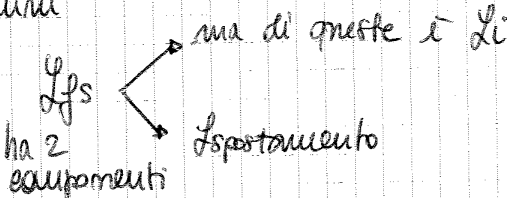 una di queste è Li
Lfs
ha 2
componenti
Lspostamento